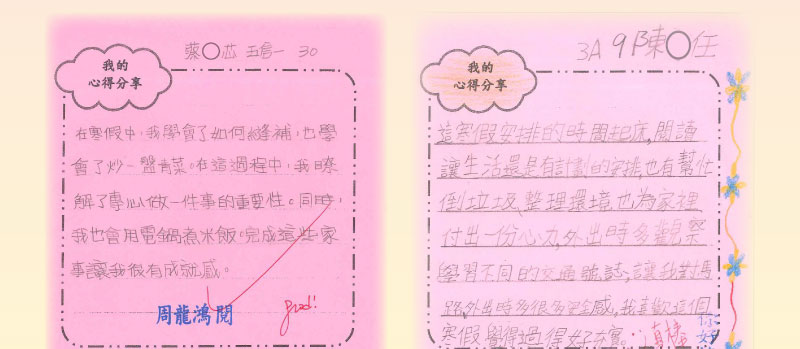 蔡○芯 五信一 30
我的
心得分享
在寒假中,我學會了如何縫補,也學
會了炒一盤青菜。在這過程中,我瞭
解了專心做一件事的重要性。同時,
我也會用電鍋煮米飯,完成這些家
事讓我很有成就感。
周龍鴻閱
good!
3A 9 陳○任
我的
心得分享
這寒假安排的時間起床,閱讀
讓生活還是有計劃的安排,也有幫忙
倒垃圾、整理環境,也為家裡
付出一份心力,外出時多觀察
學習不同的交通號誌,讓我對馬
路外出時多很多安全感,我喜歡這個
寒假覺得過得好充實。
真棒